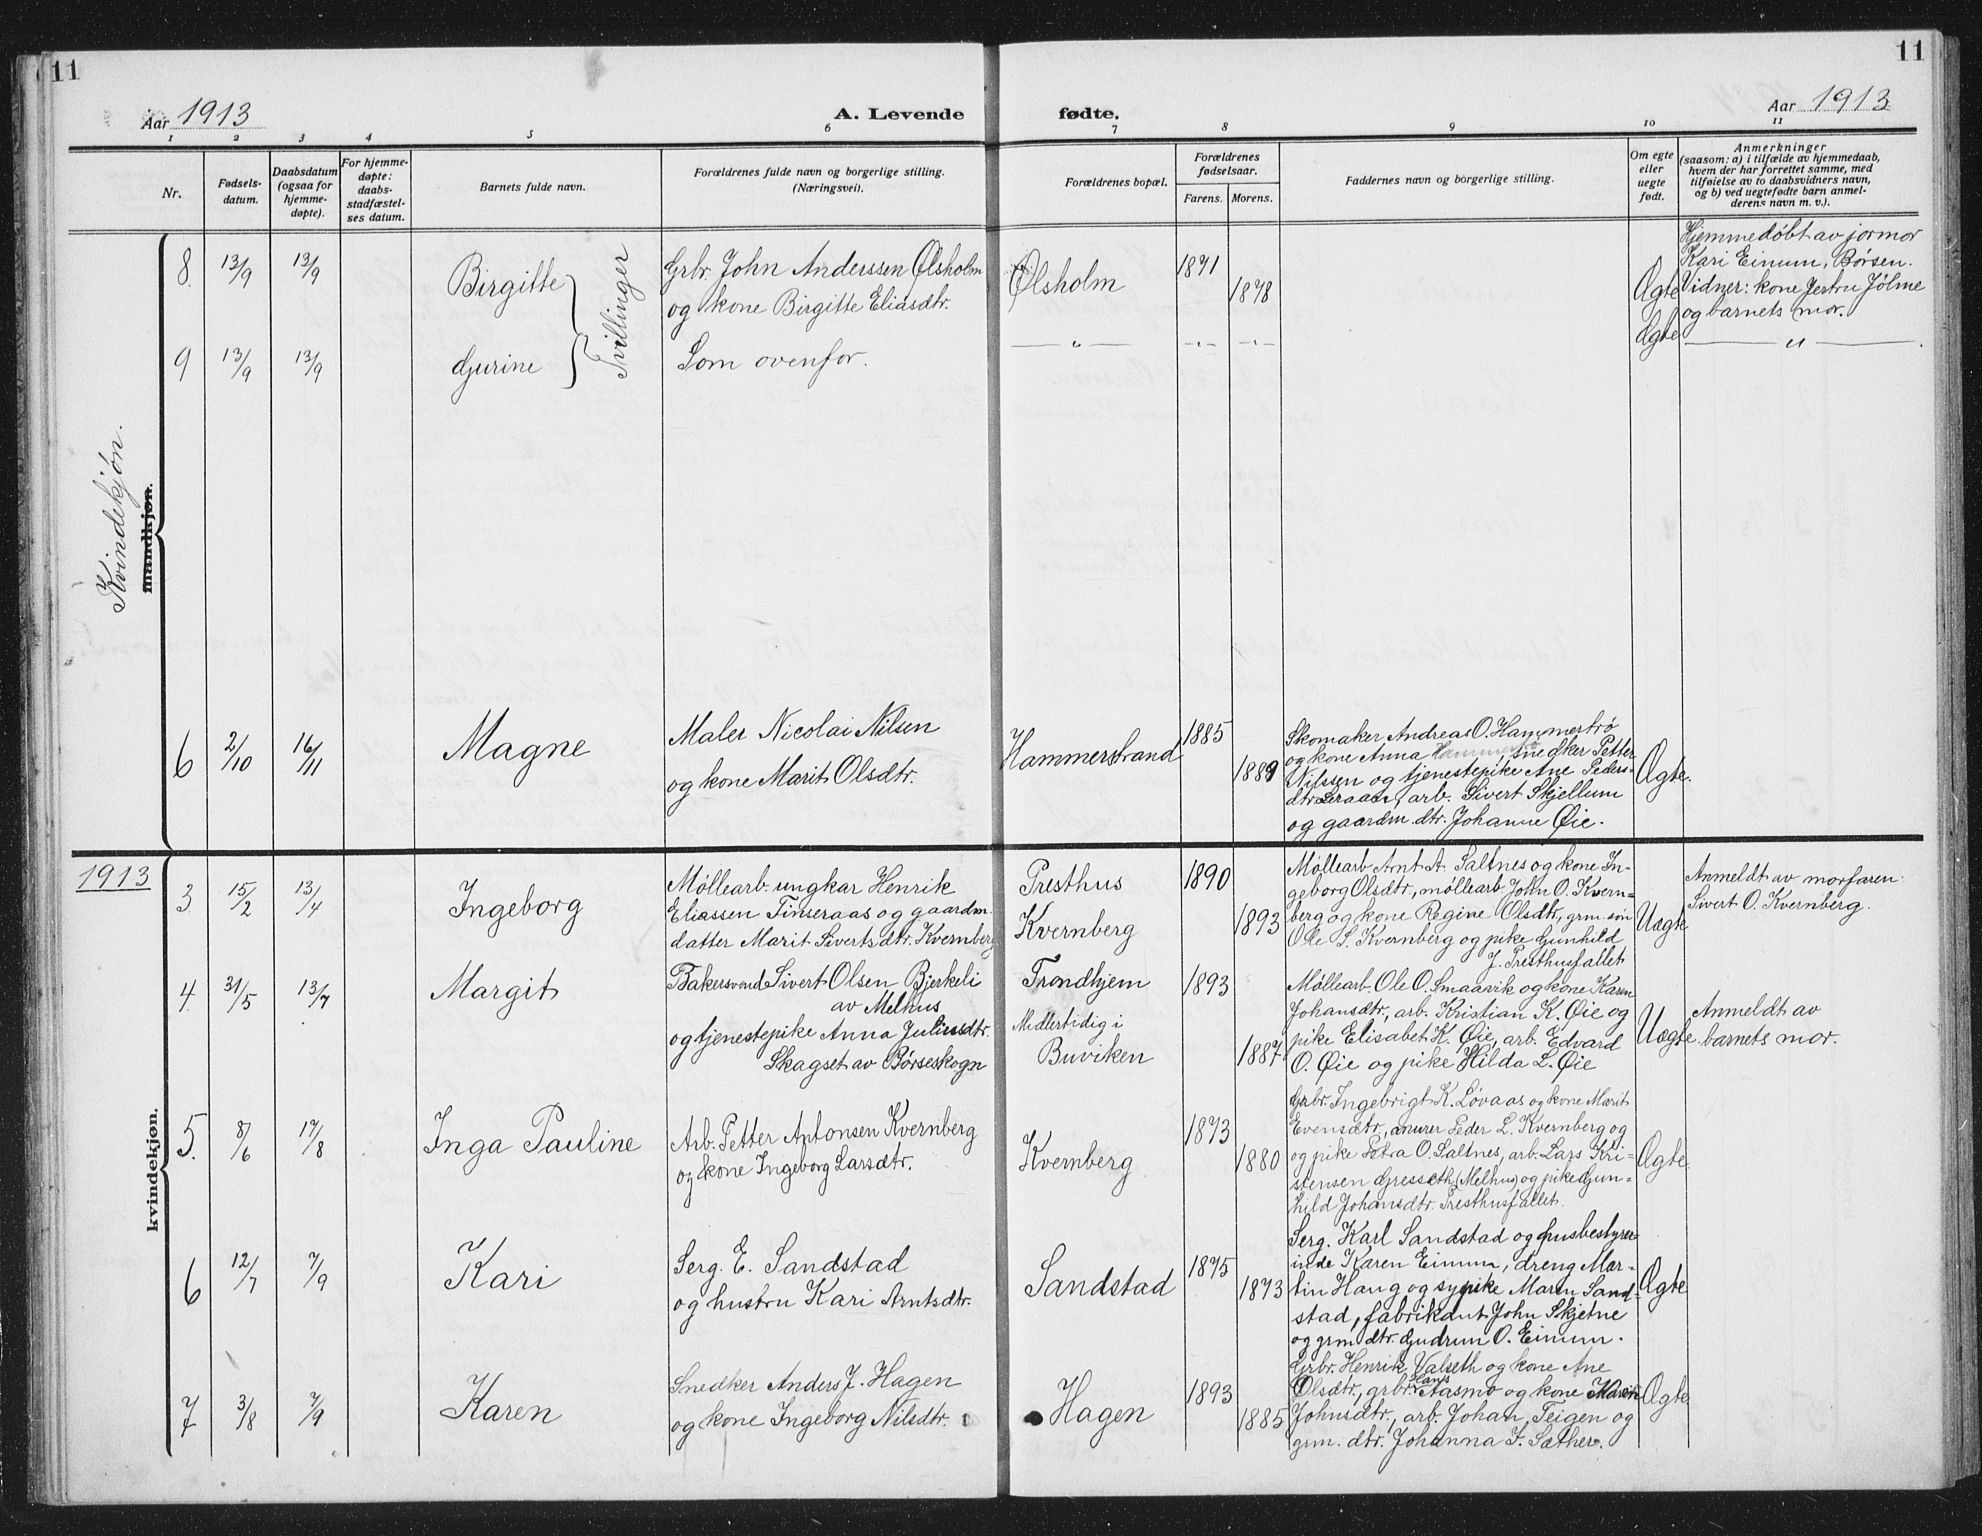 11
11
Aar 1913
A. Levende
fødte.
Aar 1913
1 2 3 4 5 6 7 8 9 10 11
Nr.
Fødsels-
datum.
Daabsdatum
(ogsaa for
hjemme-
døpte).
For hjemme-
døpte:
daabs-
stadfæstel-
ses datum.
Barnets fulde navn.
Forældrenes fulde navn og borgerlige stilling.
(Næringsvei).
Forældrenes bopæl.
Forældrenes
fødselsaar.
Farens. Morens.
Faddernes navn og borgerlige stilling.
Om egte
eller
uegte
født.
Anmerkninger
(saasom: a) i tilfælde av hjemmedaab,
hvem der har forrettet samme, med
tilføielse av to daabsvidners navn,
og b) ved uegtefødte barn anmel-
derens navn m. v.).
Kvindekjøn.
mandkjøn.
8 13/9 13/9
Birgitte
Tvillinger
Grbr. John Anderssen Ølsholm
og kone Birgitte Eliasdtr.
Ølsholm
1871
1878
Ægte
Hjemmedøbt av jormor
Kari Eimum, Børsen.
Vidner: kone Jertru Jølme
og barnets mor.
9 13/9 13/9
Gjurine
Som ovenfor.
— " —
- " -
- " -
Ægte
— " —
6 2/10 16/11
Magne
Maler Nicolai Nilsen
og kone Marit Olsdtr.
Hammerstrand
1885
1889
Skomaker Andreas O. Hammertrø
og kone Anna snedker Petter
Nilssen og tjenestepike Ane Peders-
dtr. arb. Sivert Skjellum
og gaardm. dtr. Johanne Øie.
Ægte.
1913
kvindekjøn.
3 15/2 13/4
Ingeborg
Møllearb. ungkar Henrik
Eliassen Tinseraas og gaardm.
datter Marit Sivertsdtr. Kvernberg
Presthus
Kvernberg
1890
1893
Møllearb. Arnt A. Saltnes og kone In-
geborg Olsdtr, møllearb John O. Kvern-
berg og kone Regine Olsdtr, grm. søn
Ole S. Kvernberg og pike Gunhild
J. Presthusfallet
Uægte
Anmeldt av morfaren
Sivert O. Kvernberg.
4. 31/5 13/7
Margit
Bakersvend Sivert Olsen Bjerkeli
av Melhus
og tjenestepike Anna Juliusdtr.
Skagset av Børseskogn
Trondhjem
Midlertidig i
Buviken
1893
1887
Møllearb. Ole O. Smaavik og kone Karen
Johansdtr, arb. Kristian K. Øie og
pike Elisabet K. Øie, arb. Edvard
O. Øie og pike Hilda L. Øie
Uægte
Anmeldt av
barnets mor.
5. 8/6 17/8
Inga Pauline
Arb. Petter Antonsen Kvernberg
og kone Ingeborg Larsdtr.
Kvernberg
1873
1880
Grbr. Ingebrigt K. Løvaas og kone Marit
Evensdtr, murer Peder L. Kvernberg og
og pike Petra O. Saltnes, arb. Lars Kri-
stensen Gresseth (Melhus) og pike Gun-
hild Johansdtr. Presthusfallet.
Ægte
6 12/7 7/9
Kari
Serg. E. Sandstad
og hustru Kari Arntsdtr.
Sandstad
1875
1873
Serg. Karl Sandstad og husbestyrer-
inde Karen Eimum, dreng Mar-
tin Haug og sypike Maren Sand-
stad, fabrikant John Skjetne
og grm dtr. Gudrun O. Eimum.
Ægte
7 3/8 7/9
Karen
Snedker Anders J. Hagen
og kone Ingeborg Nilsdtr.
Hagen
1893
1885
Grbr. Henrik Valseth og kone Ane
Olsdtr, grbr. Hans Aasmo og kone Marit
Johnsdtr., arb. Johan Teigen og
grm. dtr. Johanna J. Sæther.
Ægte